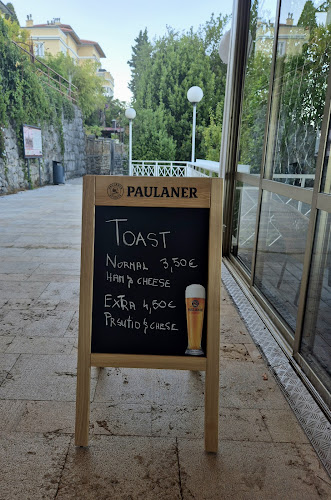 PAULANER
TOAST
NORMAL 3,50€
HAM & CHEESE
EXTRA 4,50€
PRŠUTIO & CHESE